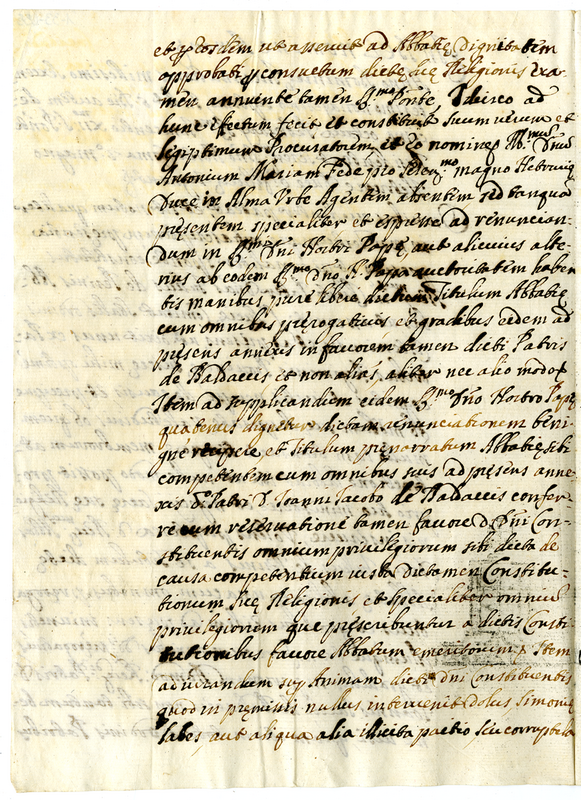 et p eosdem ut asseruit ad Abbatię dignitatem
approbati p consuetum dictę suę Religionis Exa-
men, annuente tamen S.mo Ponte, Idcirco ad
hunc effectum fecit et constituit suum verum et
legiptimum Procuratorem, et eo nomine Ill.mus Dnus
Antonium Mariam Fede pro Seren.mo magno Hetrurię
Duce in Alma Urbe Agentem absentem sed tanquā
pręsentem specialiter et expresse ad renuncian-
dum in S.mi Dni Nostri Papę aut alicuius alte-
rius ab eodem S.mo Dno N. Papa auctoritatem haben
tis manibus pure libere dictum Titulum Abbatię
cum omnibus prerogativis et gradibus eidem ad
pręsens annexis in favorem tamen dicti Patris
de Baldaccis et non alias, aliter nec alio modo
Item ad supplicandum eidem S.mo Dno Nostro Papę
quatenus dignetur dictam renunciationem beni
gnè recipere et Titulum prenarratum Abbatię sibi
competentem cum omnibus suis ad pręsens anne-
xis do Patri D. Ioanni Iacobo de Baldaccis confer-
re cum reservatione tamen favore D. Dni Con-
stituentis omnium privilegiorum sibi dicta de
causa competentium iuxta dictamen Constitu-
tionum suę Religionis et specialiter omniū
privilegiorum que pręscribuntur a dictis Consti
tutionibus favore Abbatum emeritorum Item
ad iurandum sup Animam dicti Dni Constituentis
quod in pręmissis nullus intervenit dolus Simonię
labes, aut aliqua alia illicita pactio, seu corruptela